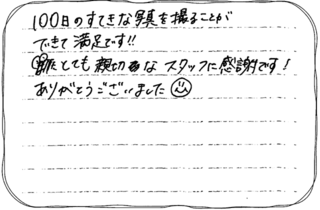 100日のすてきな写真を撮ることが
できて満足です!!
とても親切なスタッフに感謝です!
ありがとうございました